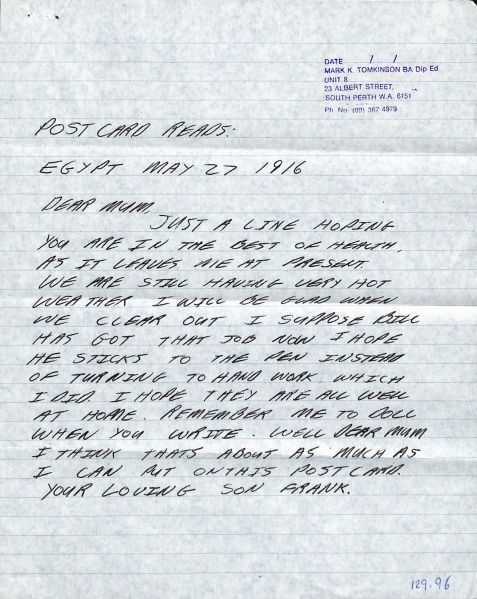 DATE / /
MARK K. TOMKINSON BA Dip Ed
UNIT 8
23 ALBERT STREET,
SOUTH PERTH W.A. 6151
Ph. No. (09) 367 4979
POSTCARD READS:
EGYPT MAY 27 1916
DEAR MUM,
JUST A LINE HOPING
YOU ARE IN THE BEST OF HEALTH.
AS IT LEAVES ME AT PRESENT.
WE ARE STILL HAVING VERY HOT
WEATHER I WILL BE GLAD WHEN
WE CLEAR OUT I SUPPOSE BILL
HAS GOT THAT JOB NOW I HOPE
HE STICKS TO THE PEN INSTEAD
OF TURNING TO HAND WORK WHICH
I DID. I HOPE THEY ARE ALL WELL
AT HOME. REMEMBER ME TO DOLL
WHEN YOU WRITE. WELL DEAR MUM
I THINK THATS ABOUT AS MUCH AS
I CAN PUT ON THIS POSTCARD.
YOUR LOVING SON FRANK.
129.96